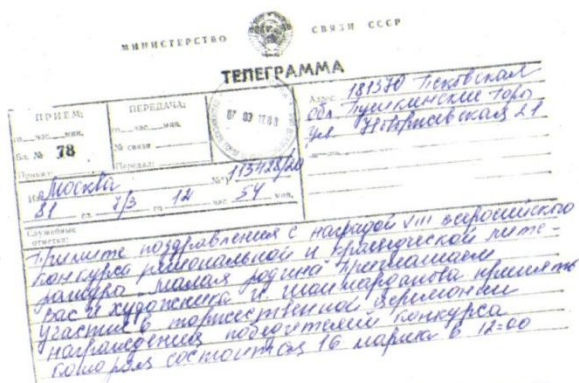 МИНИСТЕРСТВО СВЯЗИ СССР
ТЕЛЕГРАММА
ПРИЕМ:
го час. мин.
Бл. № 78
Принял:
ПЕРЕДАЧА:
го час. мин.
№ связи
Передал:
07 03
Адрес: 181370 Псковская
обл Пушкинские Горы
ул Новоржевская 21
Из Москва № 113428/20
81 сл. 7/3 го 12 час 54 мин.
Служебные
отметки:
Примите поздравления с наградой VIII всероссийского
конкурса региональной и краеведческой лите-
ратуры малая родина Приглашаем
вас и художника и шаймарданова принять
участие в торжественной церемонии
награждения победителей конкурса
которая состоится 16 марта в 12=00